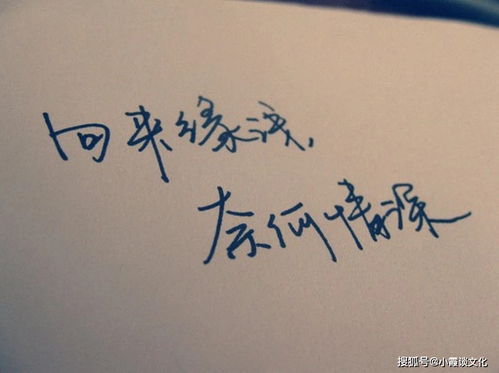 向来缘浅，
奈何情深
搜狐号@小霞谈文化